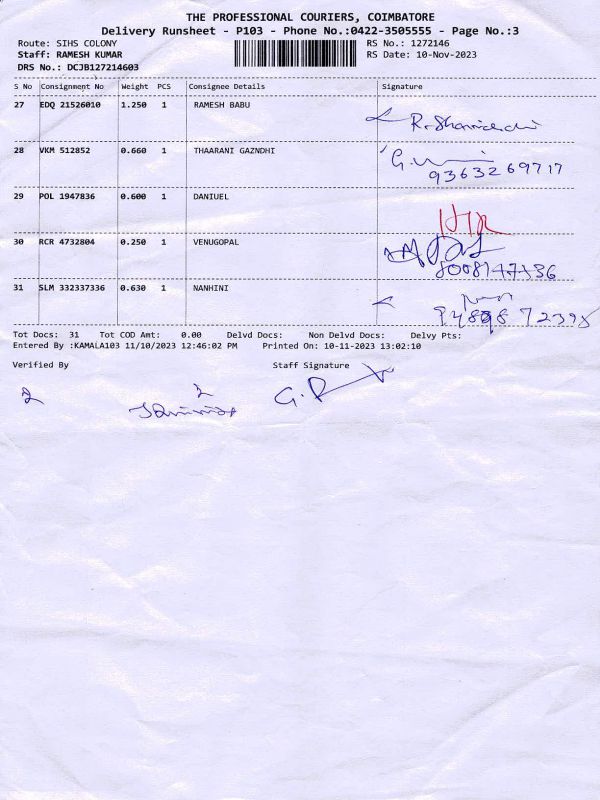 THE PROFESSIONAL COURIERS, COIMBATORE
Delivery Runsheet - P103 - Phone No.:0422-3505555 - Page No.:3
Route: SIHS COLONY RS No.: 1272146
Staff: RAMESH KUMAR RS Date: 10-Nov-2023
DRS No.: DCJB127214603
S No Consignment No Weight PCS Consignee Details Signature
27 EDQ 21526010 1.250 1 RAMESH BABU
28 VKM 512852 0.660 1 THAARANI GAZNDHI
9363269717
29 POL 1947836 0.600 1 DANIUEL
30 RCR 4732804 0.250 1 VENUGOPAL
31 SLM 332337336 0.630 1 NANHINI
Tot Docs: 31 Tot COD Amt: 0.00 Delvd Docs: Non Delvd Docs: Delvy Pts:
Entered By :KAMALA103 11/10/2023 12:46:02 PM Printed On: 10-11-2023 13:02:10
Verified By Staff Signature